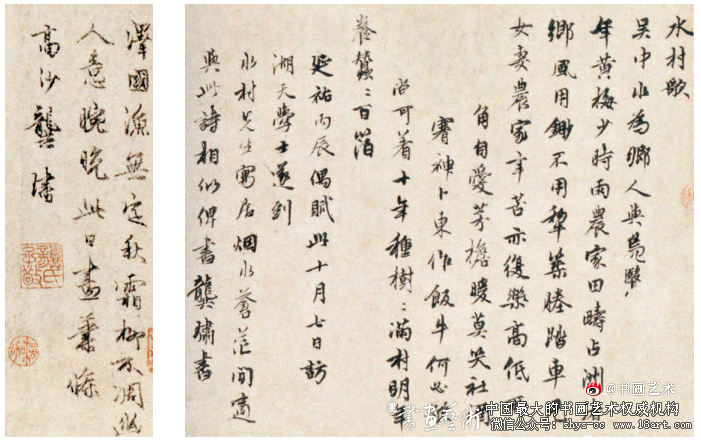 水村歌
吳中水為鄉人與鳧鷖
年黃梅少時雨農家田疇占洲渚
鄉風用鋤不用犂築塍踏車兒
女妻農家辛苦亦復樂高低
角自愛茅檐暖莫笑社
賽神卜東作飯牛何必
尚可著十年種樹〻滿村明年
養蠶〻百箔
延祐丙辰偶賦此十月七日訪
湖天學士遂到
水村先生寓居烟水蒼茫間適
與此詩相似俾書龔璛書
澤國漁無定秋霜柳不凋幽
人意晼晚此日畫蕭條
高沙龔璛
@书画艺术
书画艺术
中国最大的书画艺术权威机构
微信公众号：shys-cc www.18art.com